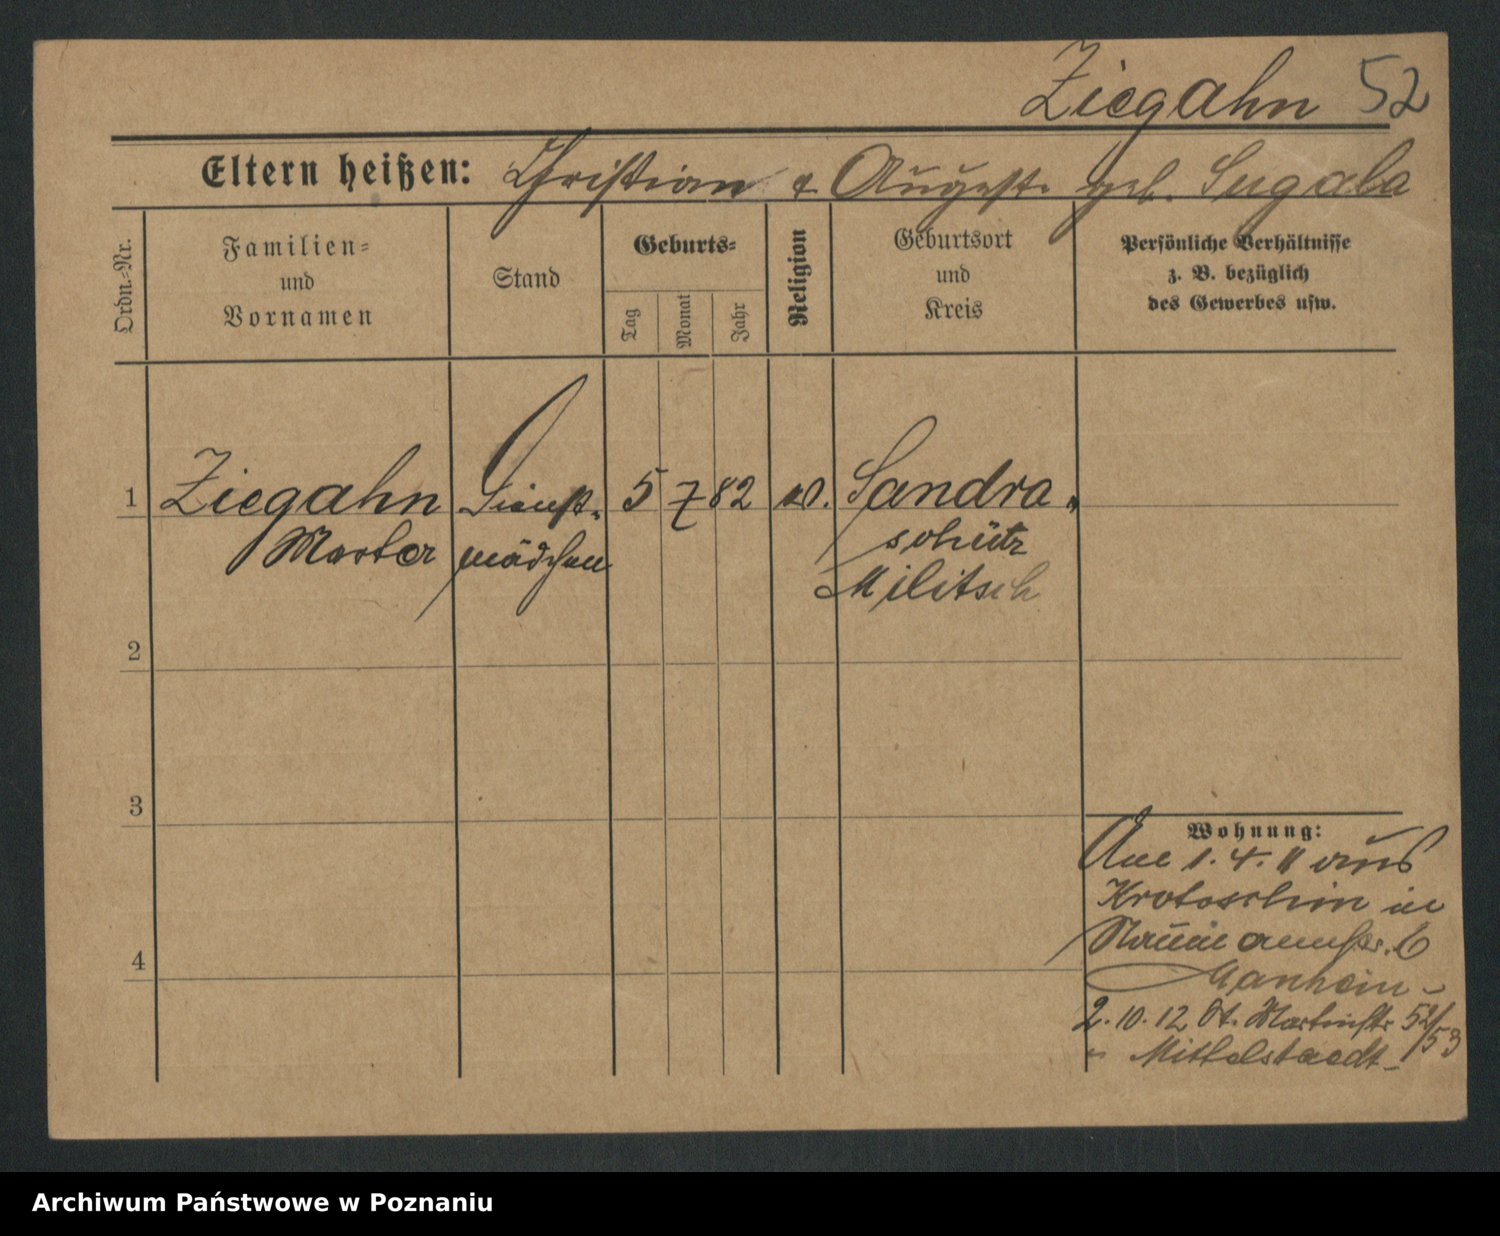 Ziegahn 52
Eltern heißen: Christian & Auguste geb. Sugala
Ordn.-Nr.
Familien-
und
Vornamen
Stand
Geburts-
Tag
Monat
Jahr
Religion
Geburtsort
und
Kreis
Persönliche Verhältnisse
z. B. bezüglich
des Gewerbes usw.
1 Ziegahn Dienst- 5 7 82 Sandra-
mädchen schütz
Militsch
2
3
4
Wohnung:
Am 1. 4. 11 aus
Krotoschin in
6
Manheim -
2. 10. 12 St. Martinstr 52/53
Mittelstaedt -
Archiwum Państwowe w Poznaniu